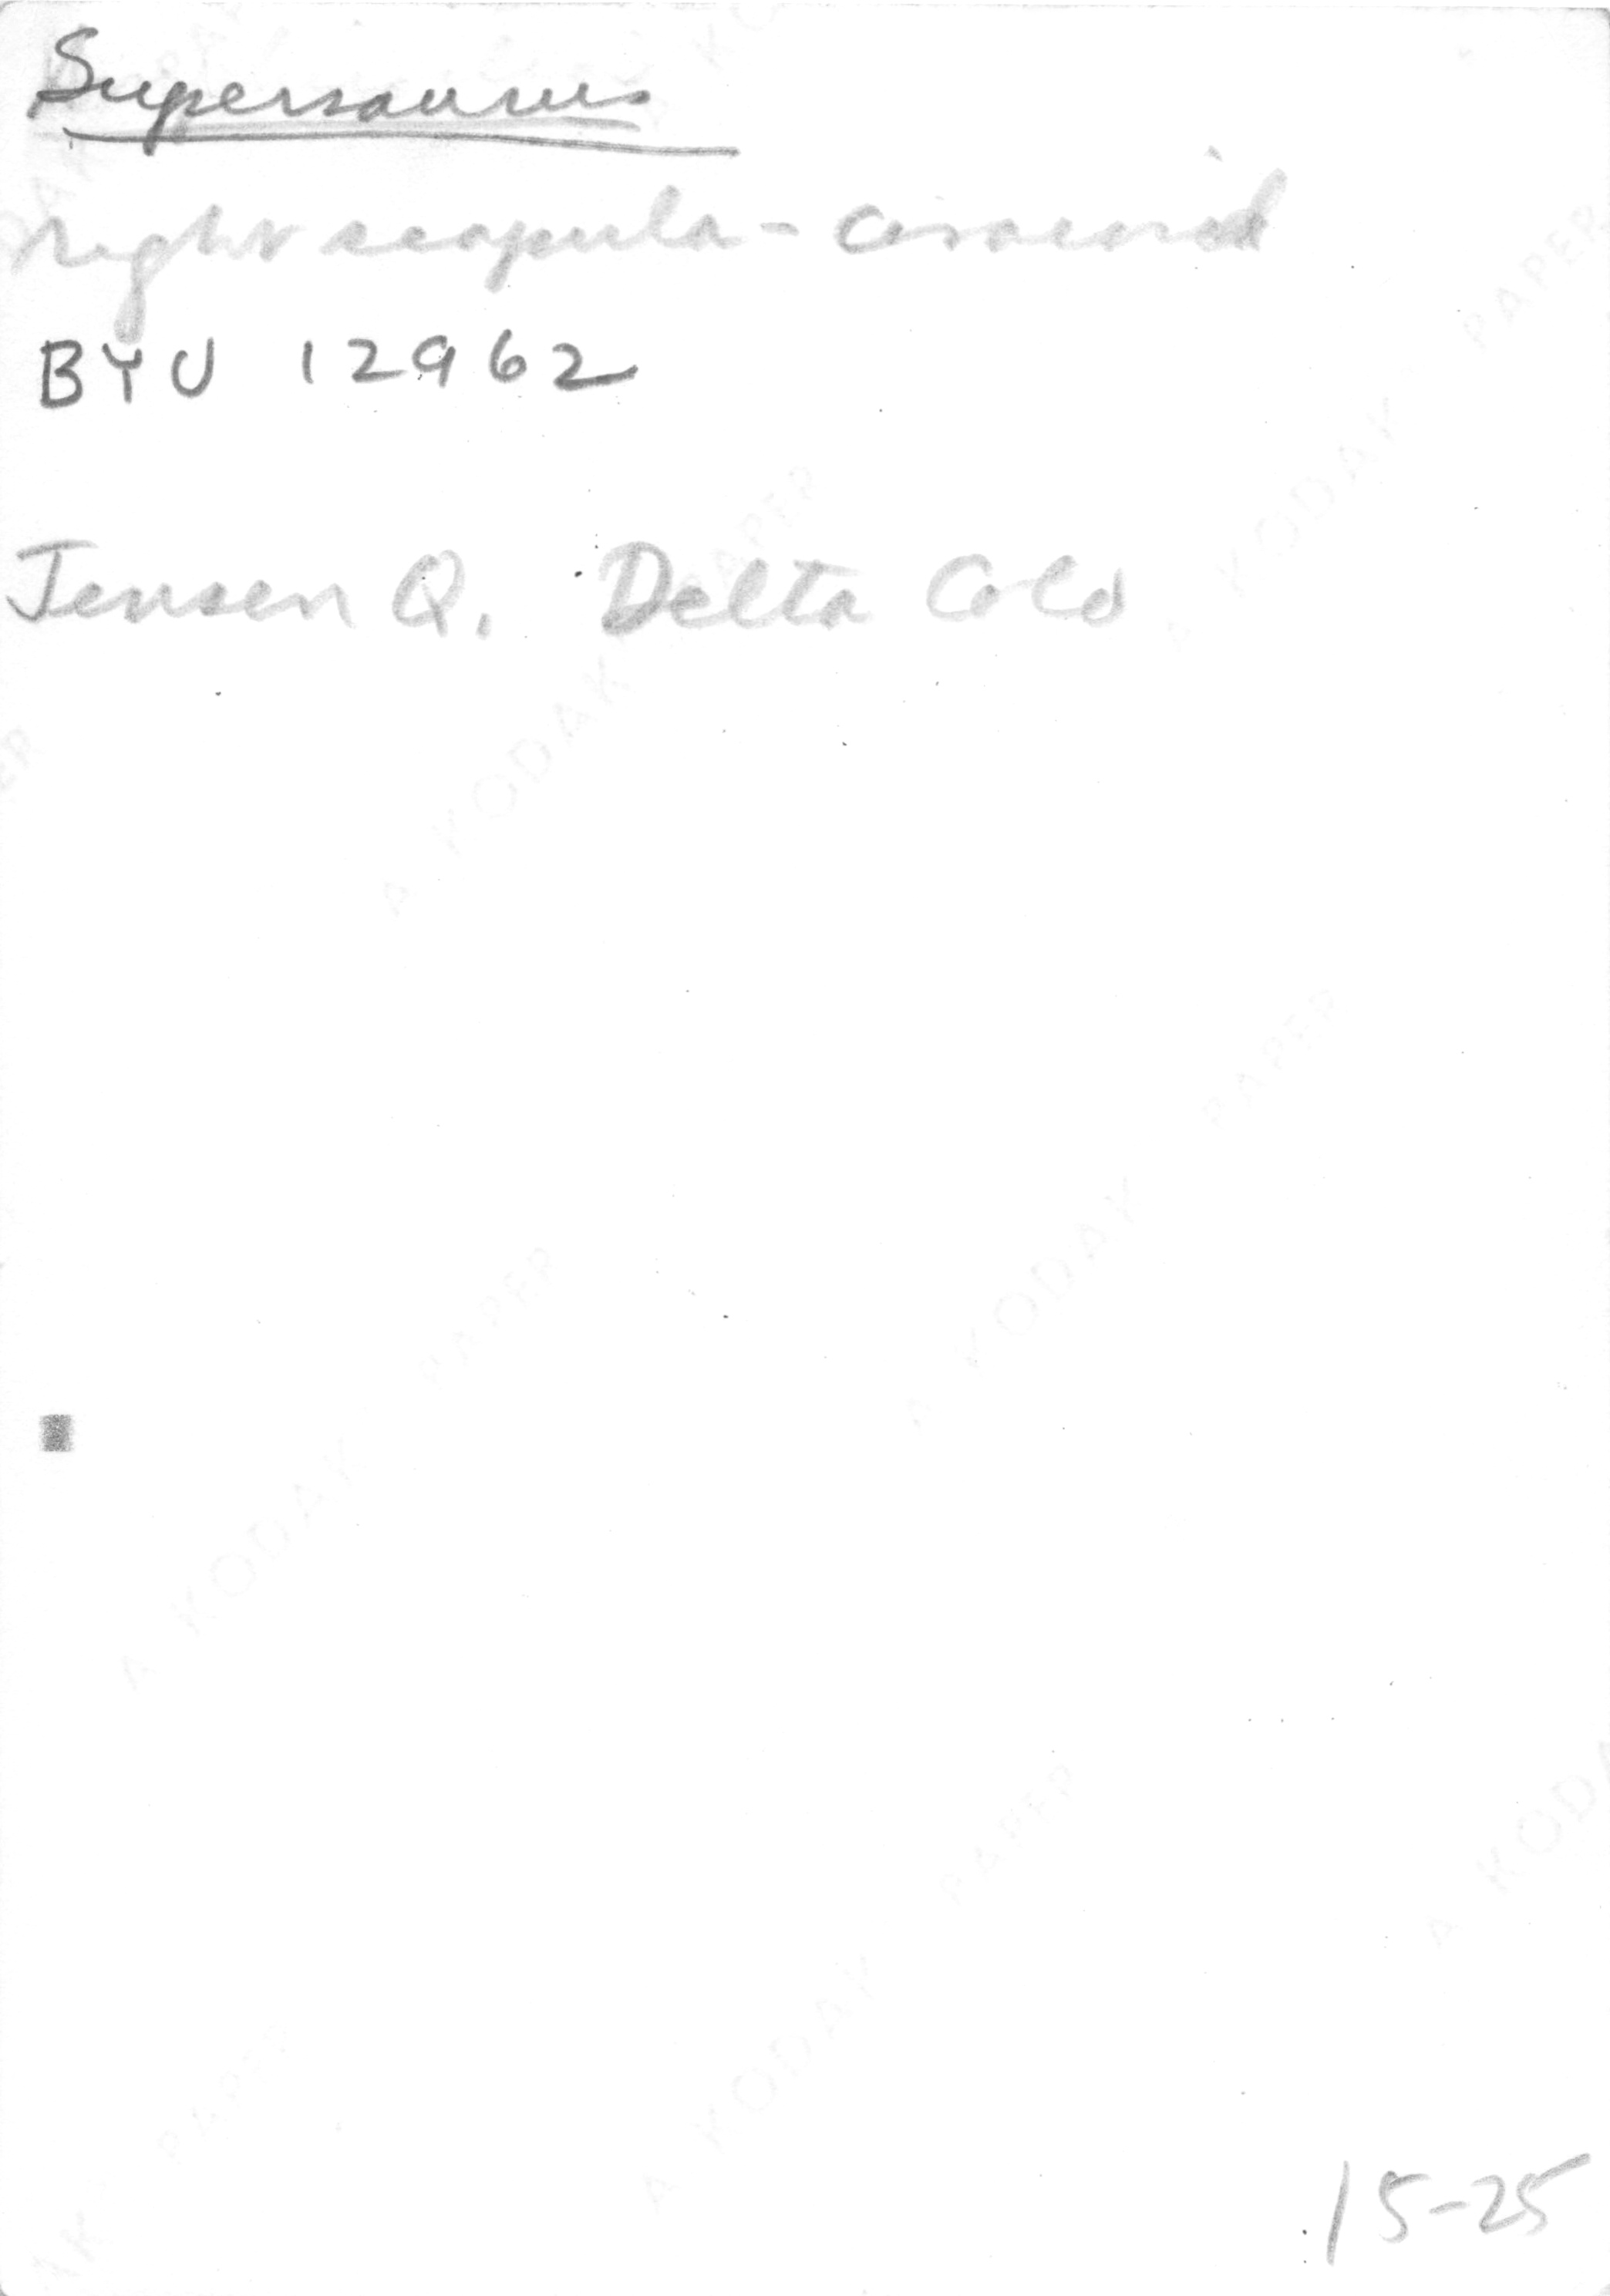 Supersaurus
right scapula - coracoid
BYU 12962
Jensen Q. Delta Colo
15-25
A KODAK PAPER